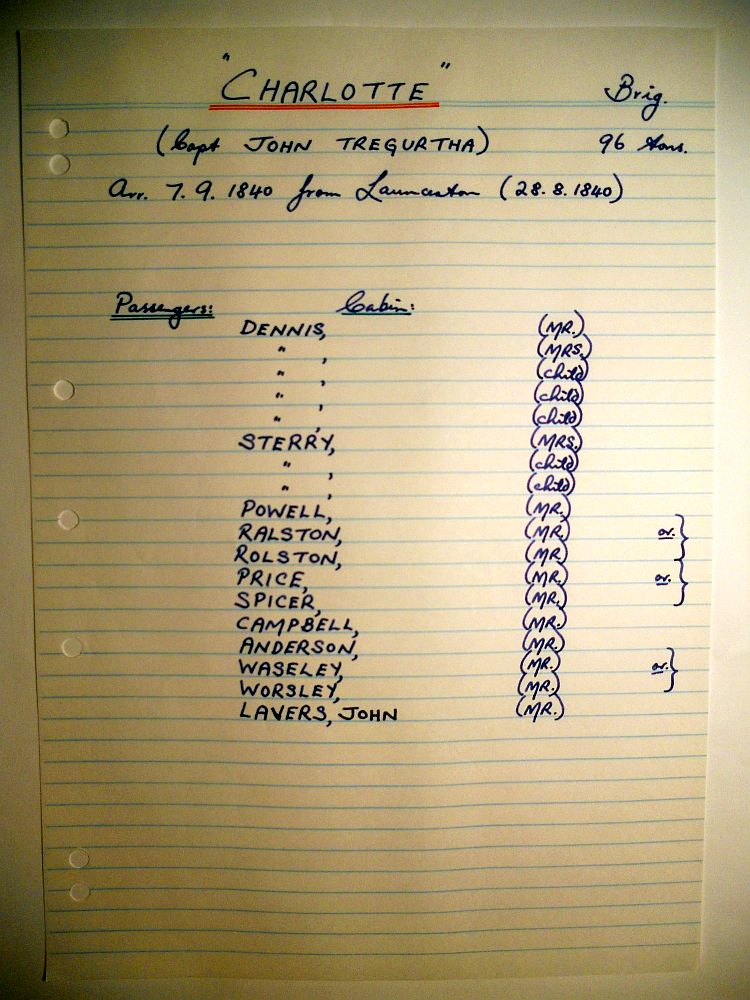 "CHARLOTTE" Brig.
(Capt JOHN TREGURTHA) 96 tons.
Arr. 7. 9. 1840 from Launceston (28. 8. 1840)
Passengers: Cabin:
DENNIS, (MR.)
" , (MRS.)
" , (child)
" , (child)
" , (child)
STERRY, (MRS.)
" , (child)
" , (child)
POWELL, (MR.)
RALSTON, (MR.) or. }
ROLSTON, (MR)
PRICE, (MR.) or. }
SPICER, (MR.)
CAMPBELL, (MR.)
ANDERSON, (MR.)
WASELEY, (MR.) or. }
WORSLEY, (MR.)
LAVERS, JOHN (MR.)